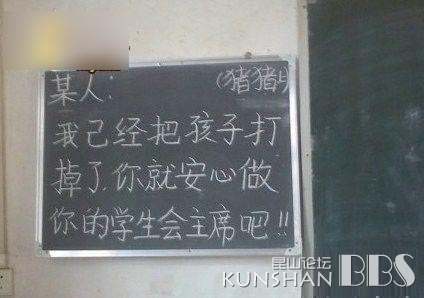 某人: (猪猪
我已经把孩子打
掉了,你就安心做
你的学生会主席吧!!
昆山论坛
KUNSHAN BBS